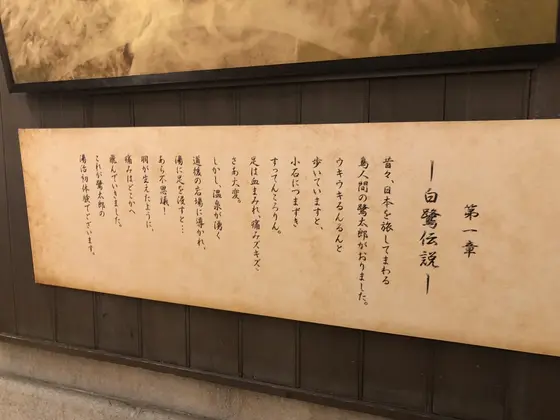 第一章
―白鷺伝説―
昔々、日本を旅してまわる
鳥人間の鷺太郎がおりました。
ウキウキるんるんと
歩いていますと、
小石につまずき
すってんころりん。
足は血まみれ、痛みズキズキ、
さあ大変。
しかし、温泉が湧く
道後の岩場に導かれ、
湯に足を浸すと…
あら不思議!
羽が生えたように、
痛みはどこかへ
飛んでいきました。
これが鷺太郎の
湯治初体験でございます。